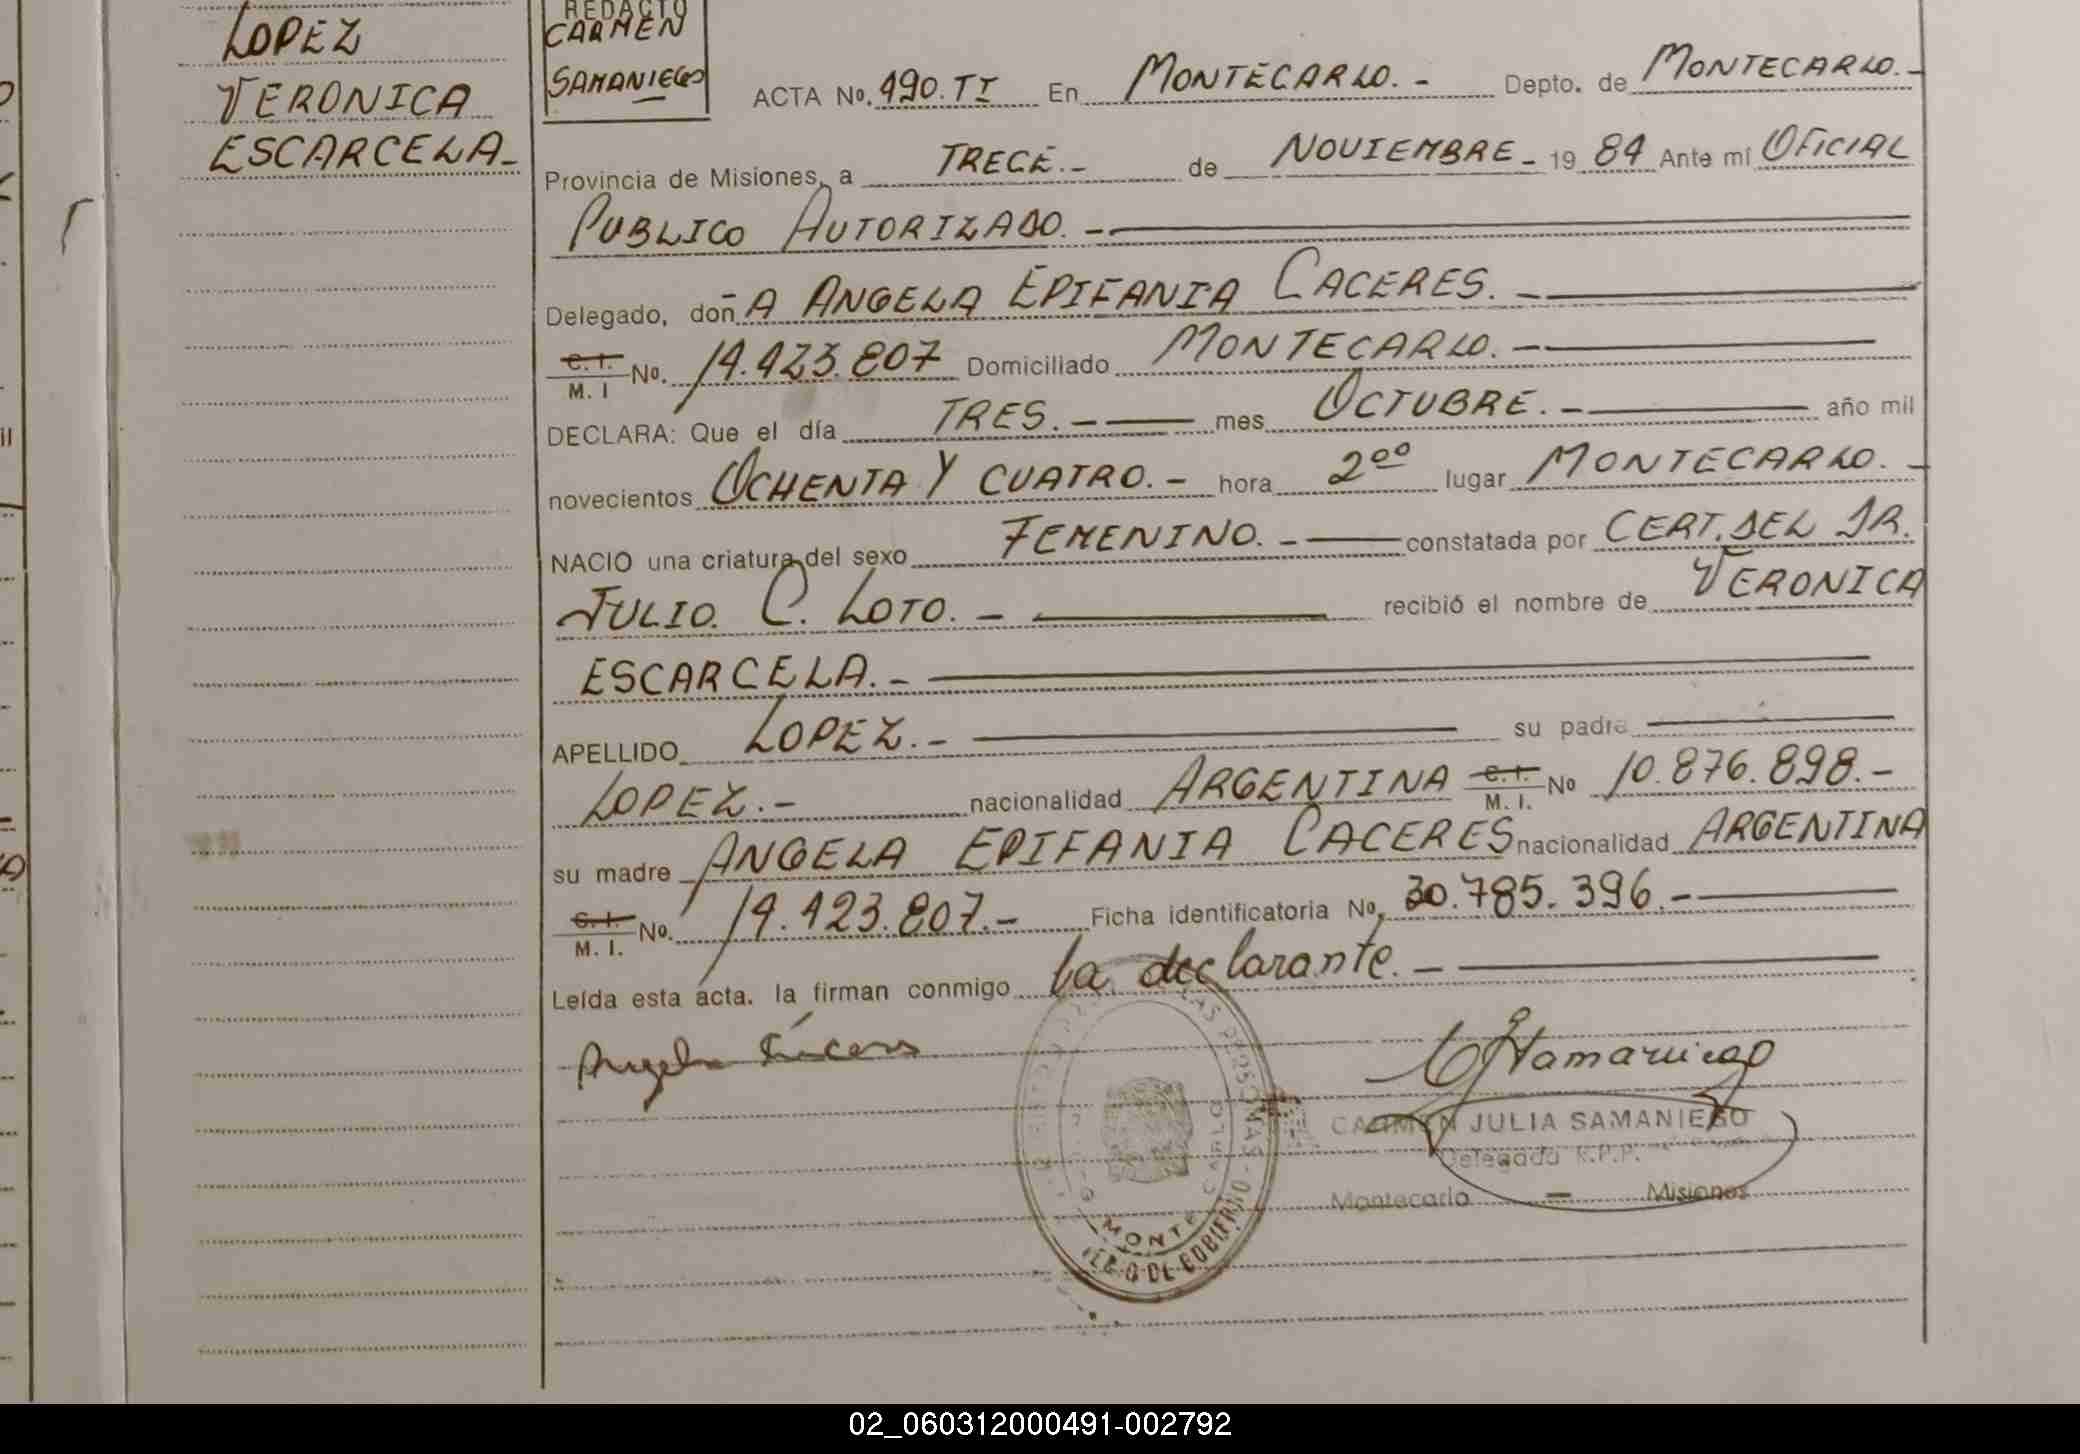 LOPEZ
VERONICA
ESCARCELA_
REDACTO
CARMEN
SAMANIEGO
ACTA No. 490. TI En MONTECARLO.- Depto. de MONTECARLO.-
Provincia de Misiones, a TRECE.- de NOVIEMBRE- 19 84 Ante mí OFICIAL
PUBLICO AUTORIZADO.-
Delegado, doñA ANGELA EPIFANIA CACERES.-
C. I.
M. I No. 14.423.807 Domiciliado MONTECARLO.-
DECLARA: Que el día TRES.- mes OCTUBRE.- año mil
novecientos OCHENTA Y CUATRO.- hora 2ºº lugar MONTECARLO.-
NACIO una criatura del sexo FEMENINO.- constatada por CERT. DEL DR.
JULIO. C. LOTO.- recibió el nombre de VERONICA
ESCARCELA.-
APELLIDO LOPEZ.- su padre
LOPEZ.- nacionalidad ARGENTINA C. I. M. I. No 10.876.898.-
su madre ANGELA EPIFANIA CACERES nacionalidad ARGENTINA
C. I.
M. I. No. 14.423.807.- Ficha identificatoria No. 30.785.396.-
Leída esta acta. la firman conmigo la declarante.-
Angela
CARMEN JULIA SAMANIEGO
Delegada R.P.P.
Montecarlo - Misiones
LAS PERSONAS
MONTE CARLO
DE GOBIERNO
02_060312000491-002792